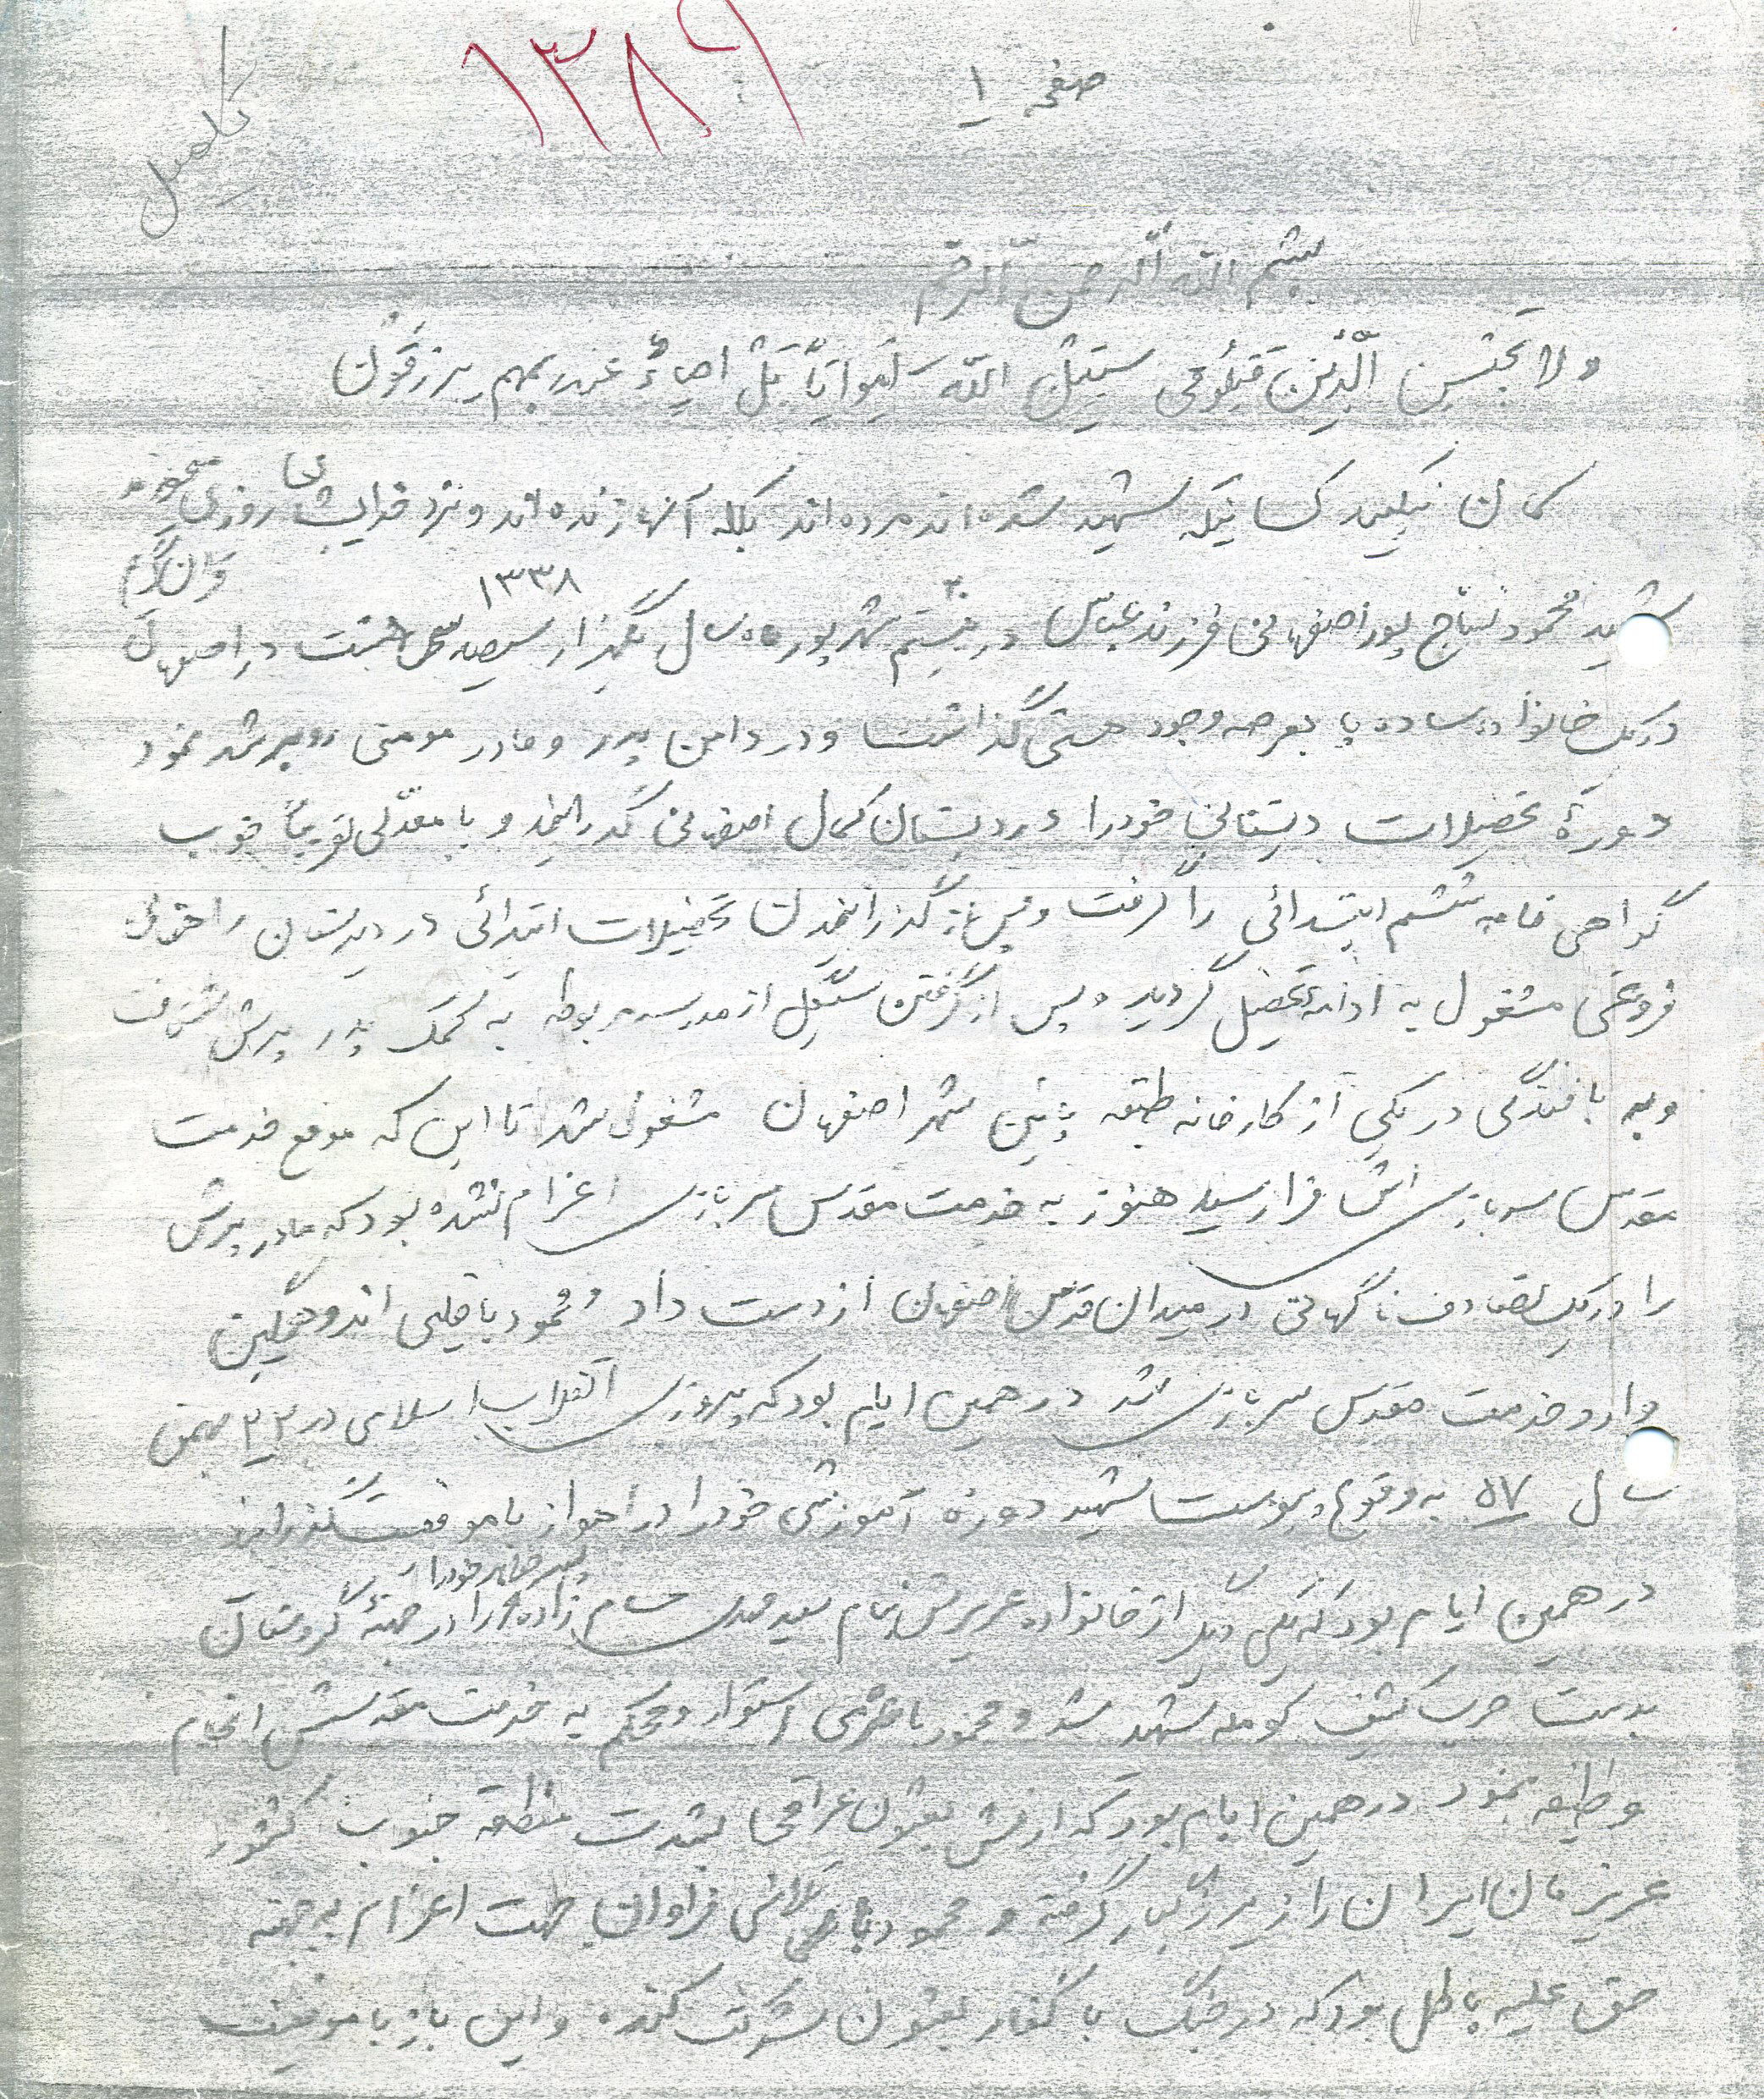 صفحه ۱
۱۳۸۹
تکمیل
بسم الله الرحمن الرحیم
ولا تحسبن الذین قتلو فی سبیل الله امواتاً بل احیاءٌ عند ربهم یرزقون
گمان نکنید کسانیکه شهید شده اند مرده اند بلکه آنها زنده اند و نزد خدایشان روزی میخورند
قرآن کریم
شهید محمود نساج پور اصفهانی فرزند عباس در بیستم شهریور ماه سال یکهزار سیصد سی هشت در اصفهان
۲۰
۱۳۳۸
در یک خانواده ساده پا بعرصه وجود هستی گذاشت و در دامن پدر و مادر مومنی رو برشد نمود
دورهٔ تحصیلات دبستانی خود را در دبستان کمال اصفهانی گذرانید و با معدلی تقریباً خوب
گواهی نامه ششم ابتدائی را گرفت و پس از گذرانیدن تحصیلات ابتدائی در دبیرستان راهنمائی
فروغی مشغول به ادامه تحصیل گردید و پس از گرفتن سیکل از مدرسه مربوطه به کمک پدر پیرش شتافت
و به بافندگی در یکی از کارخانه طبقه پائین شهر اصفهان مشغول شد تا این که موقع خدمت
مقدس سربازی اش فرا رسید هنوز به خدمت مقدس سربازی اعزام نشده بود که مادر پیرش
را در یک تصادف ناگهانی در میدان قدس اصفهان از دست داد و محمود با قلبی اندوهگین
وارد خدمت مقدس سربازی شد در همین ایام بود که پیروزی انقلاب اسلامی در ۲۲ بهمن
سال ۵۷ به وقوع پیوست شهید دوره آموزشی خود را در اهواز با موفقیت گذراند
در همین ایام بود که یکی دیگر از خانواده عزیزش بنام سعید مهدی حسام زاده را در جبههٔ کردستان
پسر خواهر خود را
بدست حزب کثیف کومله شهید شد و محمود با عزمی استوار و محکم به خدمت مقدسش انجام
وظیفه نمود در همین ایام بود که ارتش بعثیون عراقی بشدت منطقه جنوب کشور
عزیزمان ایران را زیر رگبار گرفته و محمود با تلاش فراوان جهت اعزام به جبهه
حق علیه باطل بود که در جنگ با کفار بعثیون شرکت کند و این بار با موفقیت